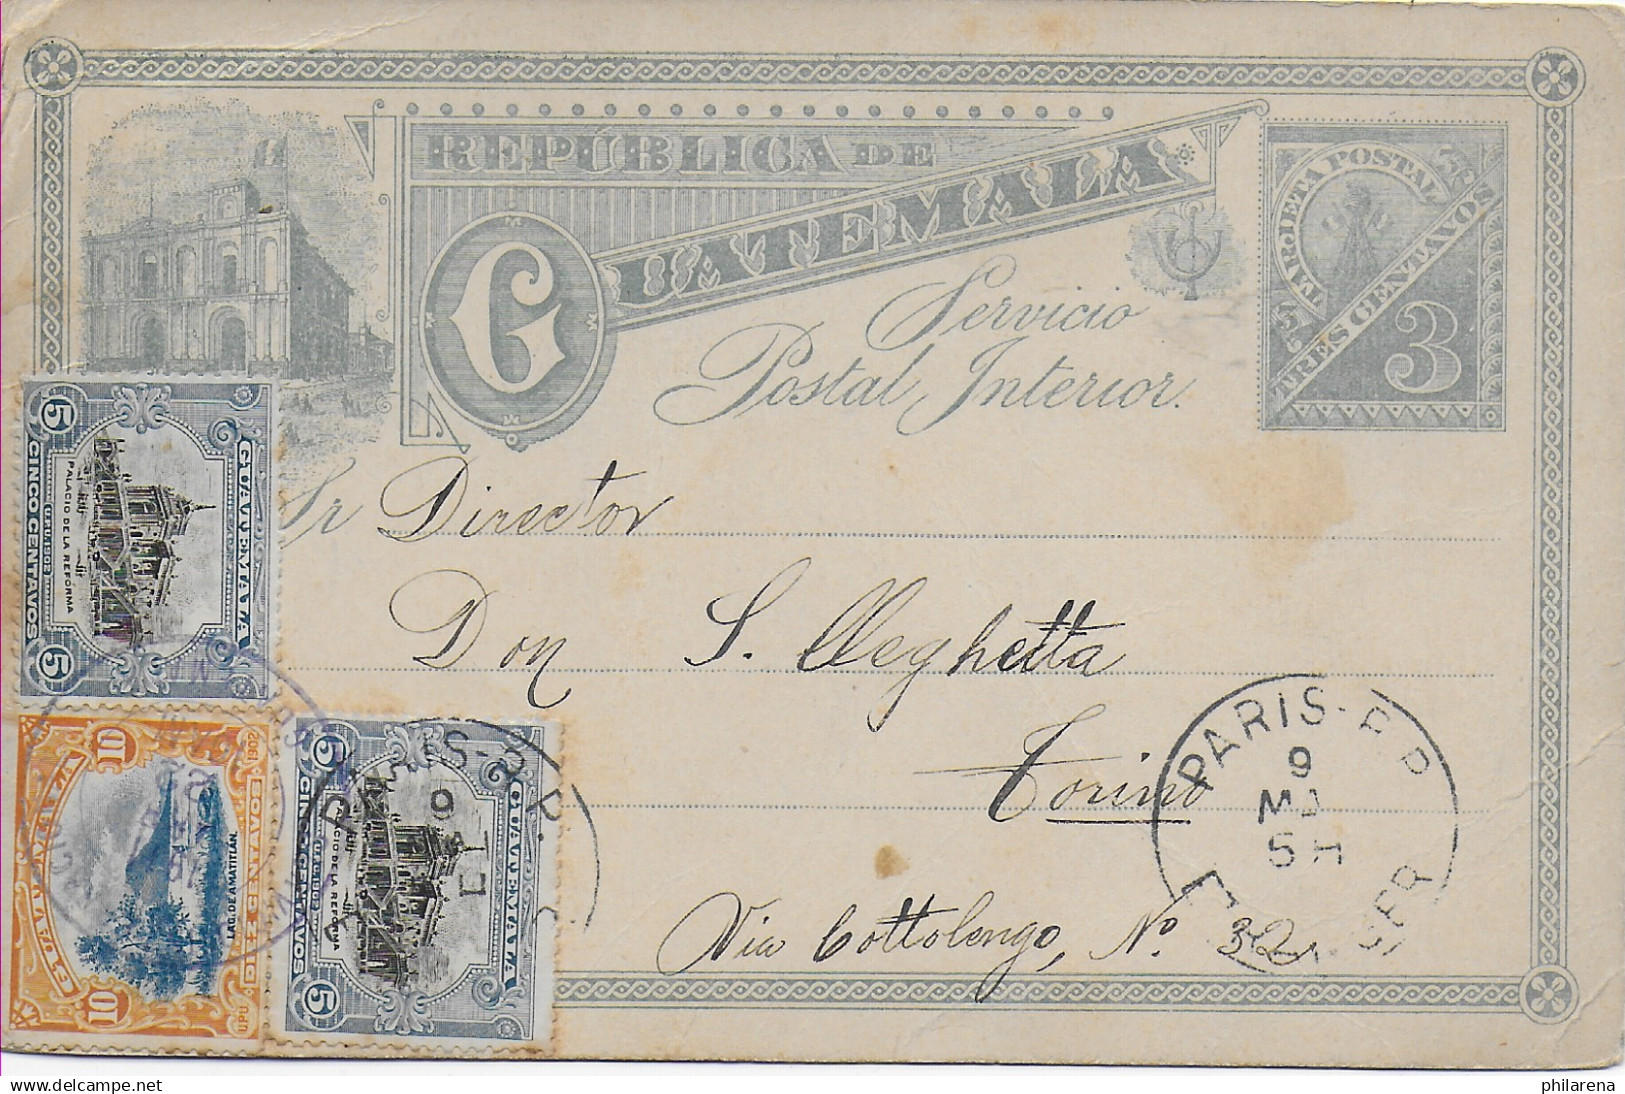 REPÚBLICA DE
GUATEMALA
Servicio
Postal Interior.
TARJETA POSTAL
TRES CENTAVOS
3
Sr Director
Don S.
Torino
Via Cottolengo, No. 32
GUATEMALA
5 5
PALACIO DE LA REFORMA
U.P.U. 1902
CINCO CENTAVOS
GUATEMALA
10 10
LAG. DE AMATITLÁN.
DIEZ CENTAVOS. 1902
UPU
GUATEMALA
5 5
PALACIO DE LA REFORMA
U.P.U. 1902
CINCO CENTAVOS
PARIS-R.P.
9
PARIS-R.P.
9
MAI
5 H
philarena